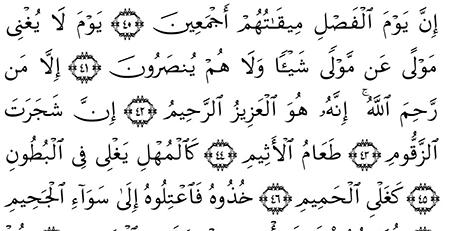 إِنَّ يَوْمَ ٱلْفَصْلِ مِيقَـٰتُهُمْ أَجْمَعِينَ ٤٠ يَوْمَ لَا يُغْنِى
مَوْلًى عَن مَّوْلًى شَيْـًٔا وَلَا هُمْ يُنصَرُونَ ٤١ إِلَّا مَن
رَّحِمَ ٱللَّهُ ۚ إِنَّهُۥ هُوَ ٱلْعَزِيزُ ٱلرَّحِيمُ ٤٢ إِنَّ شَجَرَتَ
ٱلزَّقُّومِ ٤٣ طَعَامُ ٱلْأَثِيمِ ٤٤ كَٱلْمُهْلِ يَغْلِى فِى ٱلْبُطُونِ
٤٥ كَغَلْىِ ٱلْحَمِيمِ ٤٦ خُذُوهُ فَٱعْتِلُوهُ إِلَىٰ سَوَآءِ ٱلْجَحِيمِ